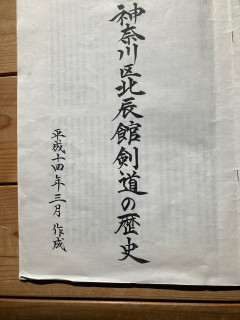 神奈川区北辰館剣道の歴史
平成十四年三月 作成